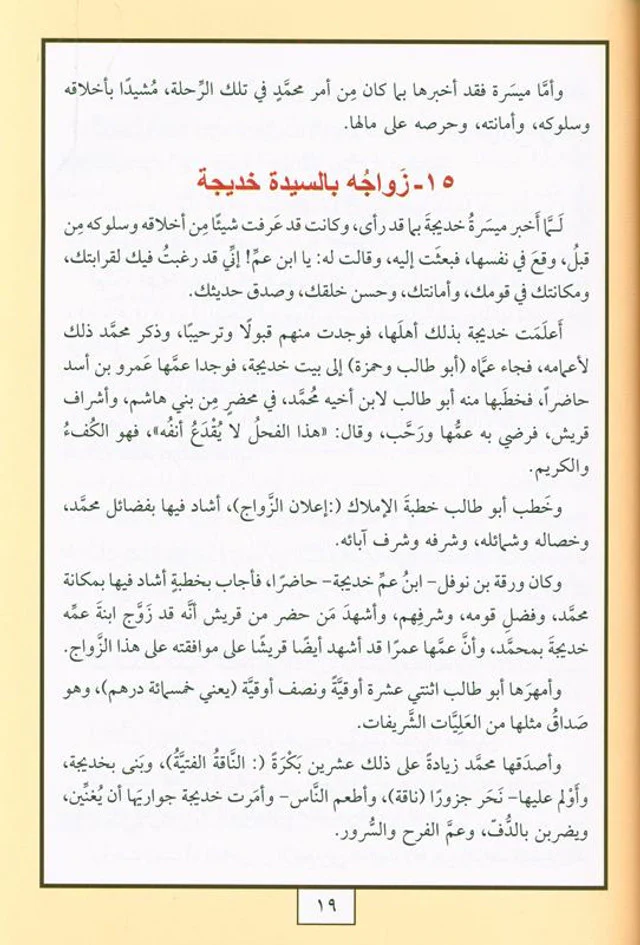 وأمَّا ميسَرة فقد أخبرها بما كان مِن أمر محمَّدٍ في تلك الرِّحلة، مُشيدًا بأخلاقه
وسلوكه، وأمانته، وحرصه على مالها.
١٥- زَواجُه بالسيدة خديجة
لَـمَّا أَخبر ميسَرةُ خديجةَ بما قد رأى، وكانت قد عَرفت شيئًا مِن أخلاقه وسلوكه مِن
قبلُ، وقعَ في نفسها، فبعثَت إليه، وقالت له: يا ابن عمِّ! إنِّي قد رغبتُ فيك لقرابتك،
ومكانتك في قومك، وأمانتك، وحسن خلقك، وصدق حديثك.
أَعلَمَت خديجة بذلك أهلَها، فوجدت منهم قبولًا وترحيبًا، وذكر محمَّد ذلك
لأعمامه، فجاء عمَّاه (أبو طالب وحمزة) إلى بيت خديجة، فوجدا عمَّها عَمرو بن أسد
حاضراً، فخطَبها منه أبو طالب لابن أخيه مُحمَّد، في محضرٍ مِن بني هاشم، وأشراف
قريش، فرضي به عمُّها ورَحَّب، وقال: «هذا الفحلُ لا يُقْدَعُ أنفُه»، فهو الكُفءُ
والكريم.
وخَطب أبو طالب خطبةَ الإملاك (:إعلان الزَّواج)، أشاد فيها بفضائل محمَّد،
وخصاله وشمائله، وشرفه وشرف آبائه.
وكان ورقة بن نوفل- ابنُ عمِّ خديجة- حاضرًا، فأجاب بخطبةٍ أشاد فيها بمكانة
محمَّد، وفضلِ قومه، وشرفِهم، وأشهدَ مَن حضر من قريش أنَّه قد زَوَّج ابنةَ عمِّه
خديجةَ بمحمَّد، وأنَّ عمَّها عمرًا قد أشهد أيضًا قريشًا على موافقته على هذا الزَّواج.
وأمهرَها أبو طالب اثنتي عشرة أوقيَّةً ونصف أوقيَّة (يعني خمسمائة درهم)، وهو
صَداقُ مثلها من العَلِيَّات الشَّريفات.
وأصدَقها محمَّد زيادةً على ذلك عشرين بَكْرَةً (: النَّاقةُ الفتيَّةُ)، وبَنى بخديجة،
وأَوْلم عليها- نَحَر جزورًا (ناقة)، وأطعم النَّاس- وأمَرت خديجة جواريَها أن يُغنِّين،
ويضربن بالدُّفّ، وعمَّ الفرح والسُّرور.
١٩